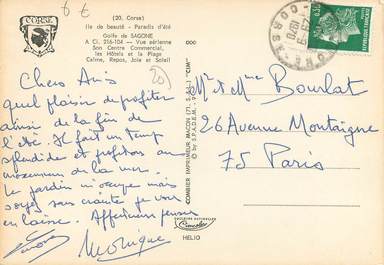 6 €
CORSE
(20. Corse)
Ile de beauté - Paradis d'été
Golfe de SAGONE
A Ci. 216-104 — Vue aérienne
Son Centre Commercial,
les Hôtels et la Plage
Calme, Repos, Joie et Soleil
20
000
COMBIER IMPRIMEUR MACON (71. S.-&-L.) "CIM"
S.P.A.D.E.M.
COULEURS NATURELLES
Cimcolor
HELIO
0,30
Chers Amis
quel plaisir de profiter
ainsi de la fin de
l'été. Il fait un temps
splendide et profitons au
maximum de la mer.
Le jardin m'occupe mais
soyez sans crainte je vous
en laisse. Affectueuses pensées
Monique
Mr et Mme Bourlat
26 Avenue Montaigne
75 Paris